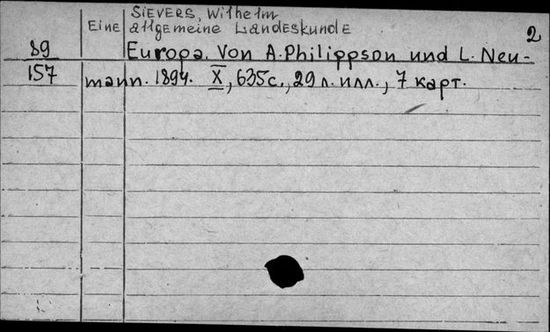 SIEVERS, Wilhelm
Eine allgemeine Landeskunde 2
89 Europa. Von A. Philippson und L. Neu-
157 mann. 1894. X, 635 с., 29 л. илл., 7 карт.